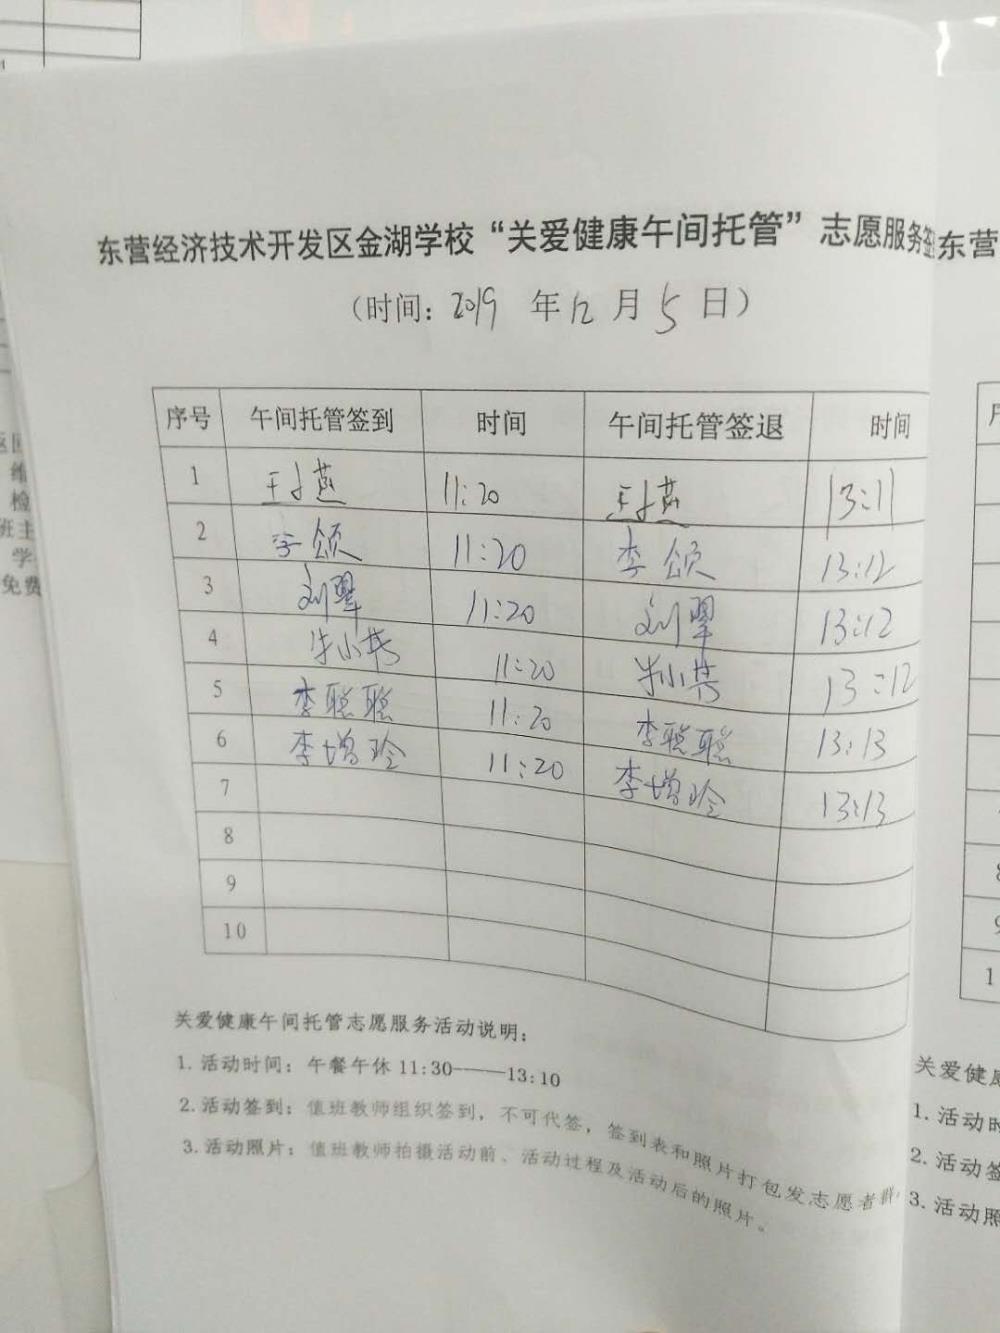 东营经济技术开发区金湖学校“关爱健康午间托管”志愿服务签
(时间: 2019 年 12 月 5 日)
序号 午间托管签到 时间 午间托管签退 时间
1 王小燕 11:20 王小燕 13:11
2 李颂 11:20 李颂 13:12
3 刘翠 11:20 刘翠 13:12
4 牛小英 11:20 牛小英 13:12
5 李聪聪 11:20 李聪聪 13:13
6 李增玲 11:20 李增玲 13:13
7
8
9
10
关爱健康午间托管志愿服务活动说明:
1. 活动时间: 午餐午休 11:30——13:10
2. 活动签到: 值班教师组织签到, 不可代签, 签到表和照片打包发志愿者群,
3. 活动照片: 值班教师拍摄活动前、活动过程及活动后的照片。
东营
关爱健康
1. 活动时
2. 活动签
3. 活动照
维
检
班主
学
免费